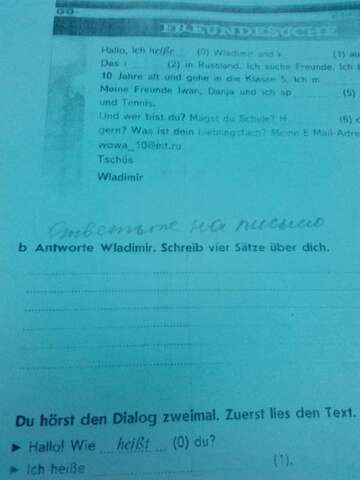 FREUNDESUCHE
Hallo, ich heiße (0) Wladimir und k (1) au
Das i (2) in Russland. Ich suche Freunde. Ich b
10 Jahre alt und gehe in die Klasse 5. Ich m
Meine Freunde Iwan, Danja und ich sp (5)
und Tennis.
Und wer bist du? Magst du Schule? H (6) d
gern? Was ist dein Lieblingsfach? Meine E-Mail-Adre
wowa_10@mt.ru
Tschüs
Wladimir
ответьте на письмо
b Antworte Wladimir. Schreib vier Sätze über dich.
Du hörst den Dialog zweimal. Zuerst lies den Text.
► Hallo! Wie heißt (0) du?
► Ich heiße (1).